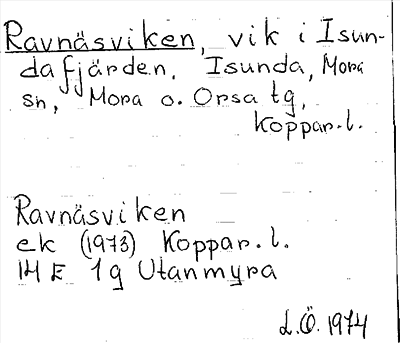 Ravnäsviken, vik i Isun-
dafjärden, Isunda, Mora
sn, Mora o. Orsa tg,
Koppar.l.
Ravnäsviken
ek (1973) Koppar.l.
14 E 1g Utanmyra
L.Ö. 1974